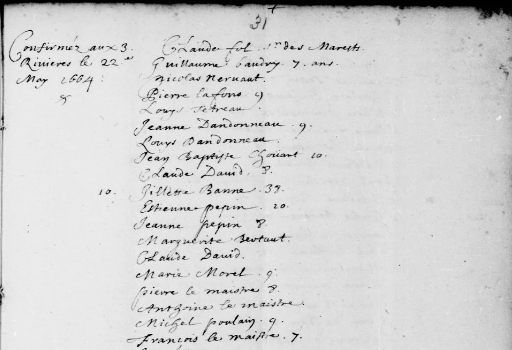 31
Confirméz aux 3. Claude fol sr des Marests
Rivieres le 22me Guillaume baudry 7. ans.
May 1664: Nicolas Nervaut.
Pierre lafons 9
Louys Tetreau.
Jeanne Dandonneau. 9.
Louys Dandonneau.
Jean Baptiste Chouart 10.
Claude David 8.
10. Jillette Banne. 38.
Estienne pepin. 20.
Jeanne pepin 8
Marguerite Bertaut.
Claude David.
Marie Morel. 9.
pierre le maistre 8.
Anthoine le maistre.
Michel poulain. 9.
François le maistre. 7.